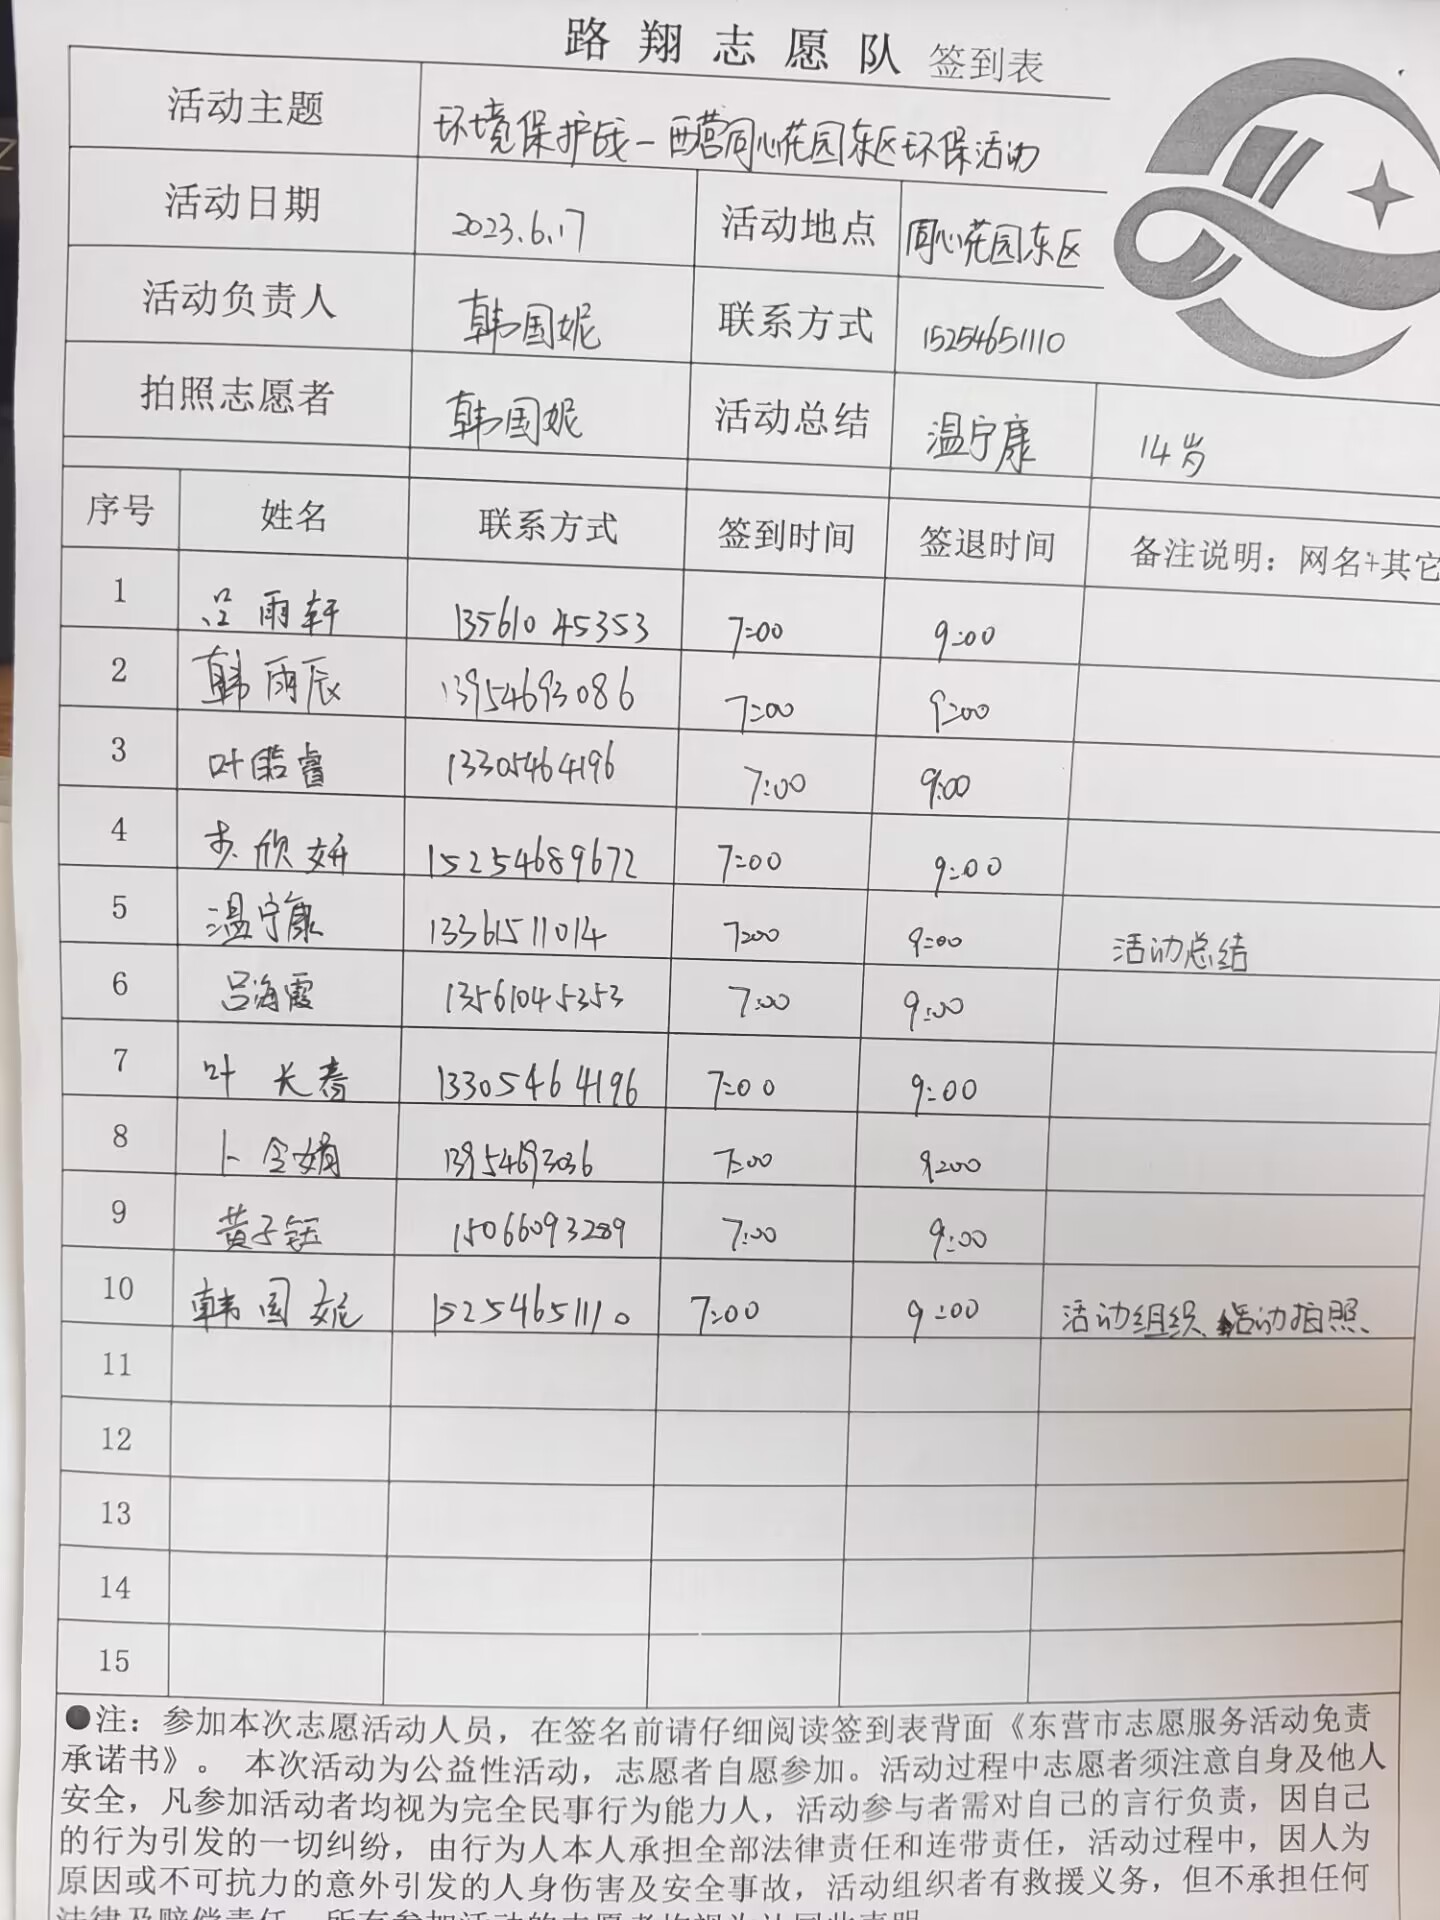 路翔志愿队 签到表
活动主题 环境保护战-西营同心花园东区环保活动
活动日期 2023.6.17 活动地点 同心花园东区
活动负责人 韩国妮 联系方式 15254651110
拍照志愿者 韩国妮 活动总结 温宁康 14岁
序号 姓名 联系方式 签到时间 签退时间 备注说明：网名+其它
1 吕雨轩 13561045353 7:00 9:00
2 韩雨辰 13954693086 7:00 9:00
3 叶睿 13305464196 7:00 9:00
4 欣妍 15254689672 7:00 9:00
5 温宁康 13361511014 7:00 9:00 活动总结
6 吕海霞 13561045353 7:00 9:00
7 叶长春 13305464196 7:00 9:00
8 卜令娟 13954693036 7:00 9:00
9 黄子钰 15066093289 7:00 9:00
10 韩国妮 15254651110 7:00 9:00 活动组织、活动拍照、
11
12
13
14
15
●注：参加本次志愿活动人员，在签名前请仔细阅读签到表背面《东营市志愿服务活动免责
承诺书》。 本次活动为公益性活动，志愿者自愿参加。活动过程中志愿者须注意自身及他人
安全，凡参加活动者均视为完全民事行为能力人，活动参与者需对自己的言行负责，因自己
的行为引发的一切纠纷，由行为人本人承担全部法律责任和连带责任，活动过程中，因人为
原因或不可抗力的意外引发的人身伤害及安全事故，活动组织者有救援义务，但不承担任何
法律及赔偿责任。所有参加活动的志愿者均视为认同此声明